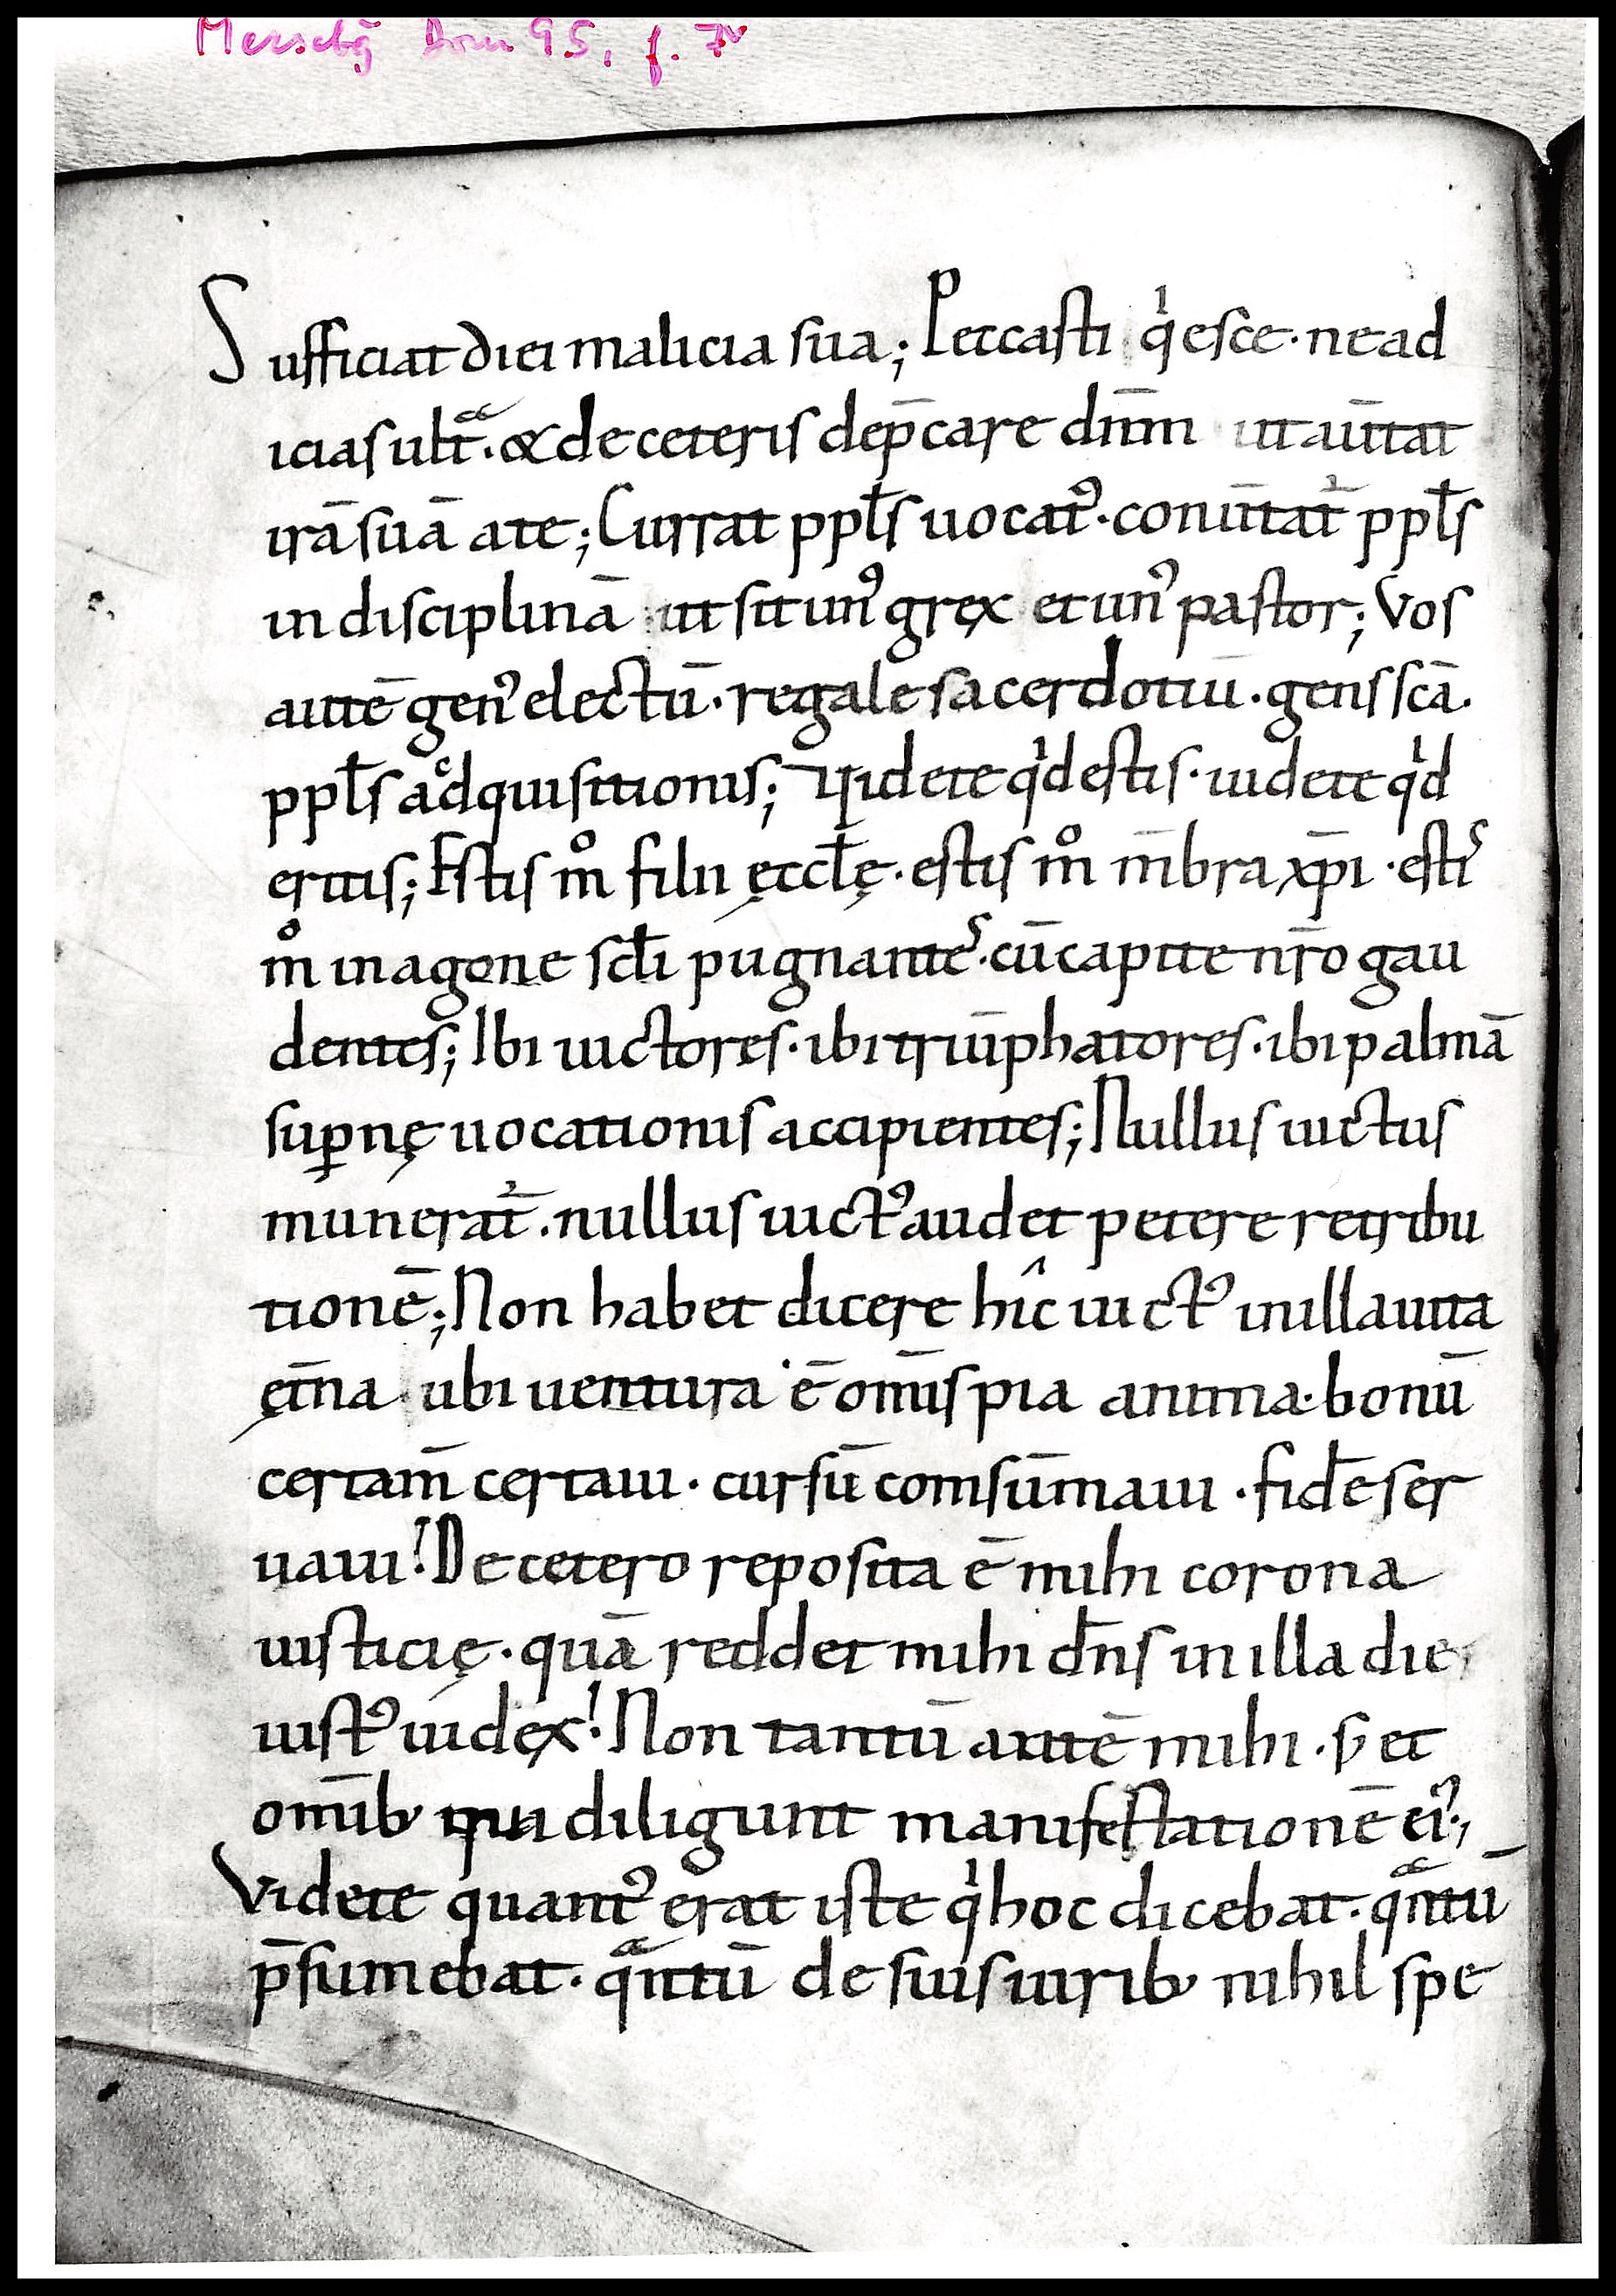 Mersebg Dom 95, f. 7v
Sufficiat diei malicia sua; Peccasti qͥesce · ne ad
icias ult̄ᵃ · & de ceteris dep̄care dn̄m ut aūtat
irā suā a te; Currat ppl̄s uocatꝰ · conūtat᷑ ppl̄s
in disciplinā ut sit unꝰ grex et unꝰ pastor; Vos
autē genꝰ electū · regale sacerdotiū · gens sc̄a ·
ppl̄s adͨquisitionis; Videte qͥd estis · uidete qͥd
eritis; Estis mͦ filii ęccl̄ę · estis mͦ m̄bra xp̄i · estiˢ
mͦ in agone scl̄i pugnanteˢ · cū capite nr̄o gau
dentes; Ibi uictores · ibi triūphatores · ibi palmā
suꝑnę uocationis accipientes; Nullus uictus
munerat᷑ · nullus uictꝰ audet petere retribu
tionē; Non habet dicere hîc uictꝰ in illa uita
ęt̄na · ubi uentura ē om̄is pia anima · bonū
certam̄ certaui · cursū comsūmaui · fidē ser
uaui! De cetero reposita ē mihi corona
iusticię · quā reddet mihi dn̄s in illa die
iustꝰ iudex! Non tantū autē mihi · s; et
om̄ib; qui diligunt manifestationē eiꝰ;
Videte quantꝰ erat iste qͥ hoc dicebat · qᵃntū
p̄sumebat · qᵃntū de suis uirib; nihil spe